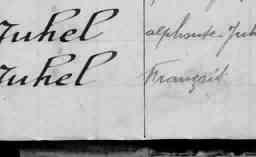 Juhel alphonse Juh
Juhel François